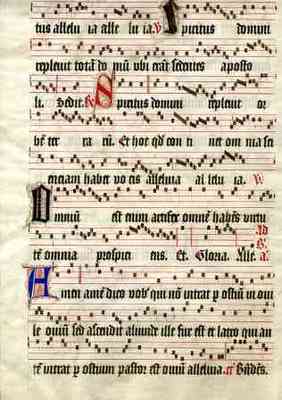 tus allelu ia alle lu ia. V Spiritus domini
repleuit totā do mū vbi erāt sedentes aposto
li. Sedit. R Spiritus domini repleuit or
bē ter ra rū. Et hoc qd con ti net om nia sci
enciam habet vo cis alleluia al lelu ia. V
Omniū est enim artifex omnē habēs virtu
tē omnia prospici ens. Et. Gloria. Alle. a.
Amen amē dico vob qui nō intrat p ostiū in oui
le ouiū sed ascendit aliunde ille fur est et latro qui au
tē intrat p ostium pastor est ouiū alleluia.